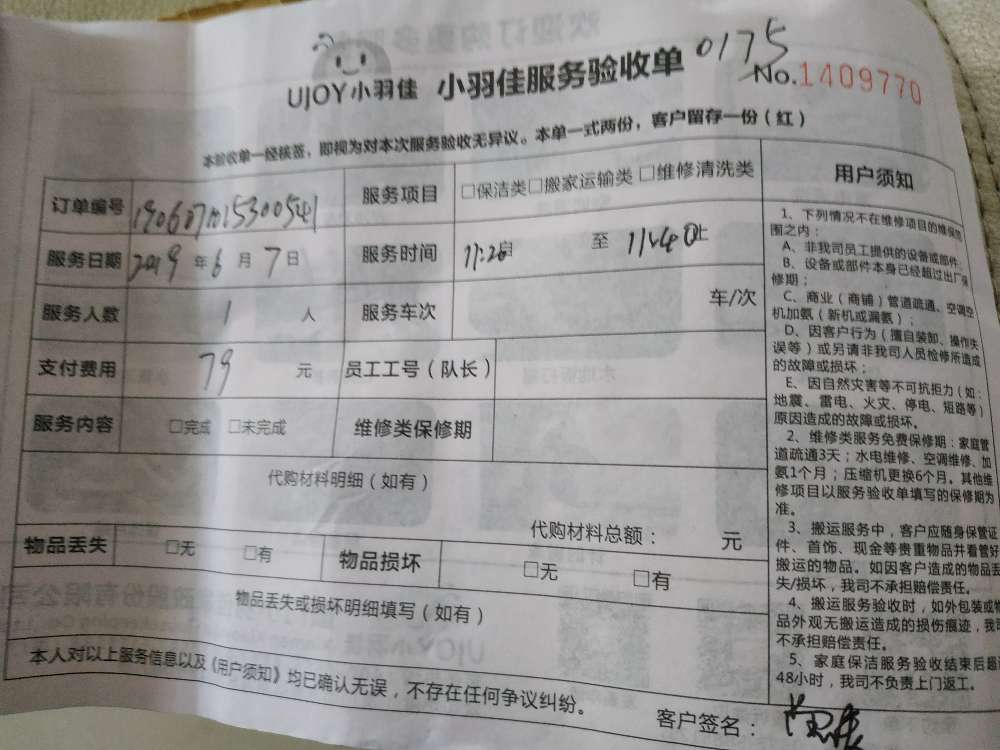 UJOY小羽佳 小羽佳服务验收单 0175
No.1409770
本验收单一经核签，即视为对本次服务验收无异议。本单一式两份，客户留存一份（红）
订单编号 服务项目 □保洁类□搬家运输类 □维修清洗类
服务日期 2019 年 6 月 7 日 服务时间 11:20 至 11:40
服务人数 1 人 服务车次 车/次
支付费用 79 元 员工工号（队长）
服务内容 □完成 □未完成 维修类保修期
代购材料明细（如有）
代购材料总额： 元
物品丢失 □无 □有 物品损坏 □无 □有
物品丢失或损坏明细填写（如有）
本人对以上服务信息以及《用户须知》均已确认无误，不存在任何争议纠纷。
客户签名：
用户须知
1、下列情况不在维修项目的维保范
围之内：
A、非我司员工提供的设备或部件
B、设备或部件本身已经超过出厂保
修期；
C、商业（商铺）管道疏通、空调空
机加氨（新机或漏氨）；
D、因客户行为（擅自装卸、操作失
误等）或另请非我司人员检修所造成
的故障或损坏；
E、因自然灾害等不可抗拒力（如：
地震、雷电、火灾、停电、短路等）
原因造成的故障或损坏。
2、维修类服务免费保修期：家庭管
道疏通3天；水电维修、空调维修、加
氨1个月；压缩机更换6个月。其他维
修项目以服务验收单填写的保修期为
准。
3、搬运服务中，客户应随身保管证
件、首饰、现金等贵重物品并看管好
搬运的物品。如因客户造成的物品丢
失/损坏，我司不承担赔偿责任。
4、搬运服务验收时，如外包装或物
品外观无搬运造成的损伤痕迹，我司
不承担赔偿责任。
5、家庭保洁服务验收结束后最
48小时，我司不负责上门返工。